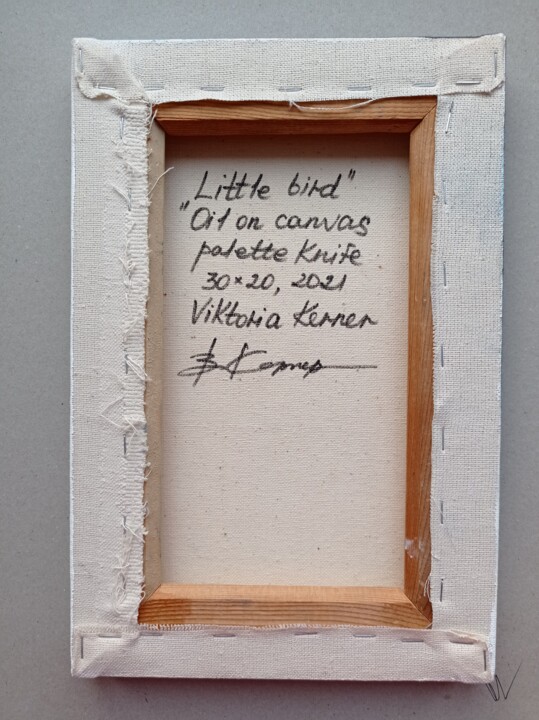 Little bird"
"Oil on canvas
palette Knife
30×20, 2021
Viktoria Kerner